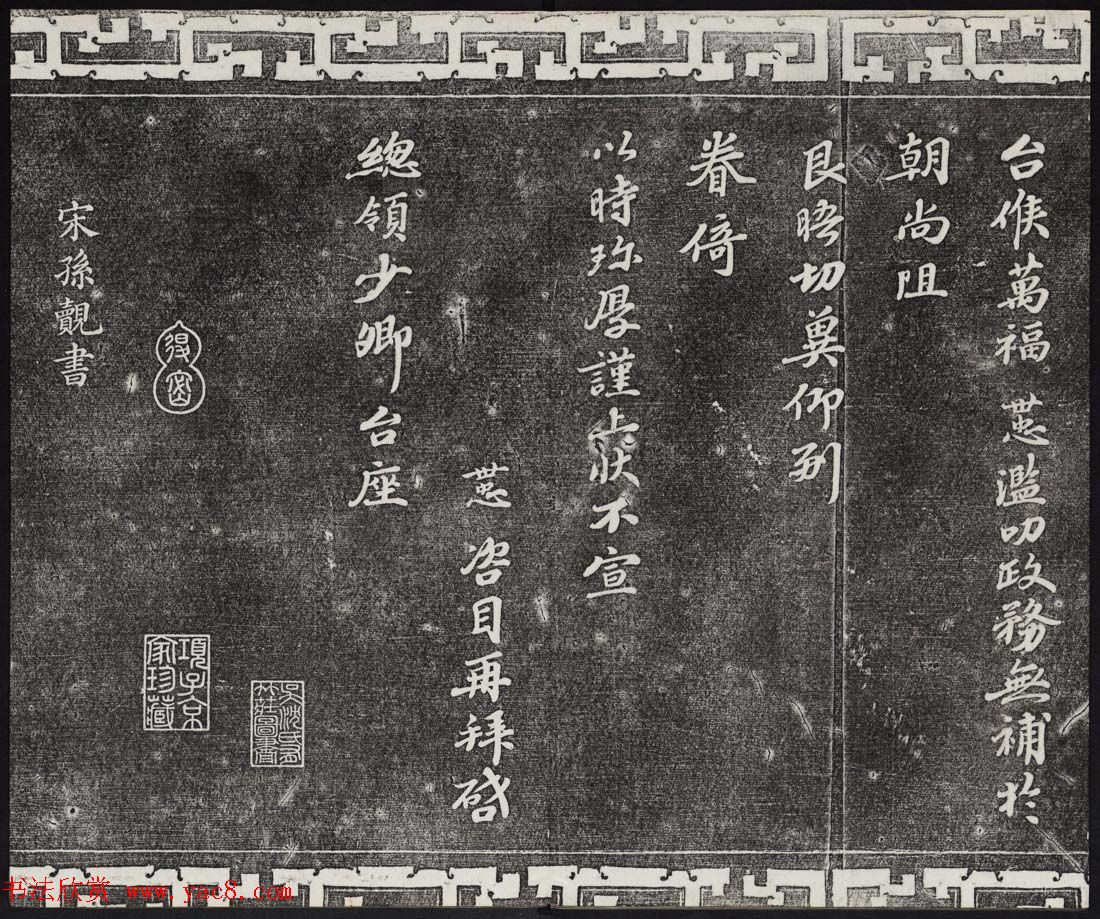 台候萬福 濫叨政務無補於
朝尚阻
良晤切冀仰副
眷倚
以時珎厚謹上狀不宣
咨目再拜啓
總領少卿台座
宋孫覿書
得密
項子京家珍藏
吳沈氏有竹莊圖書
书法欣赏 www.yac8.com